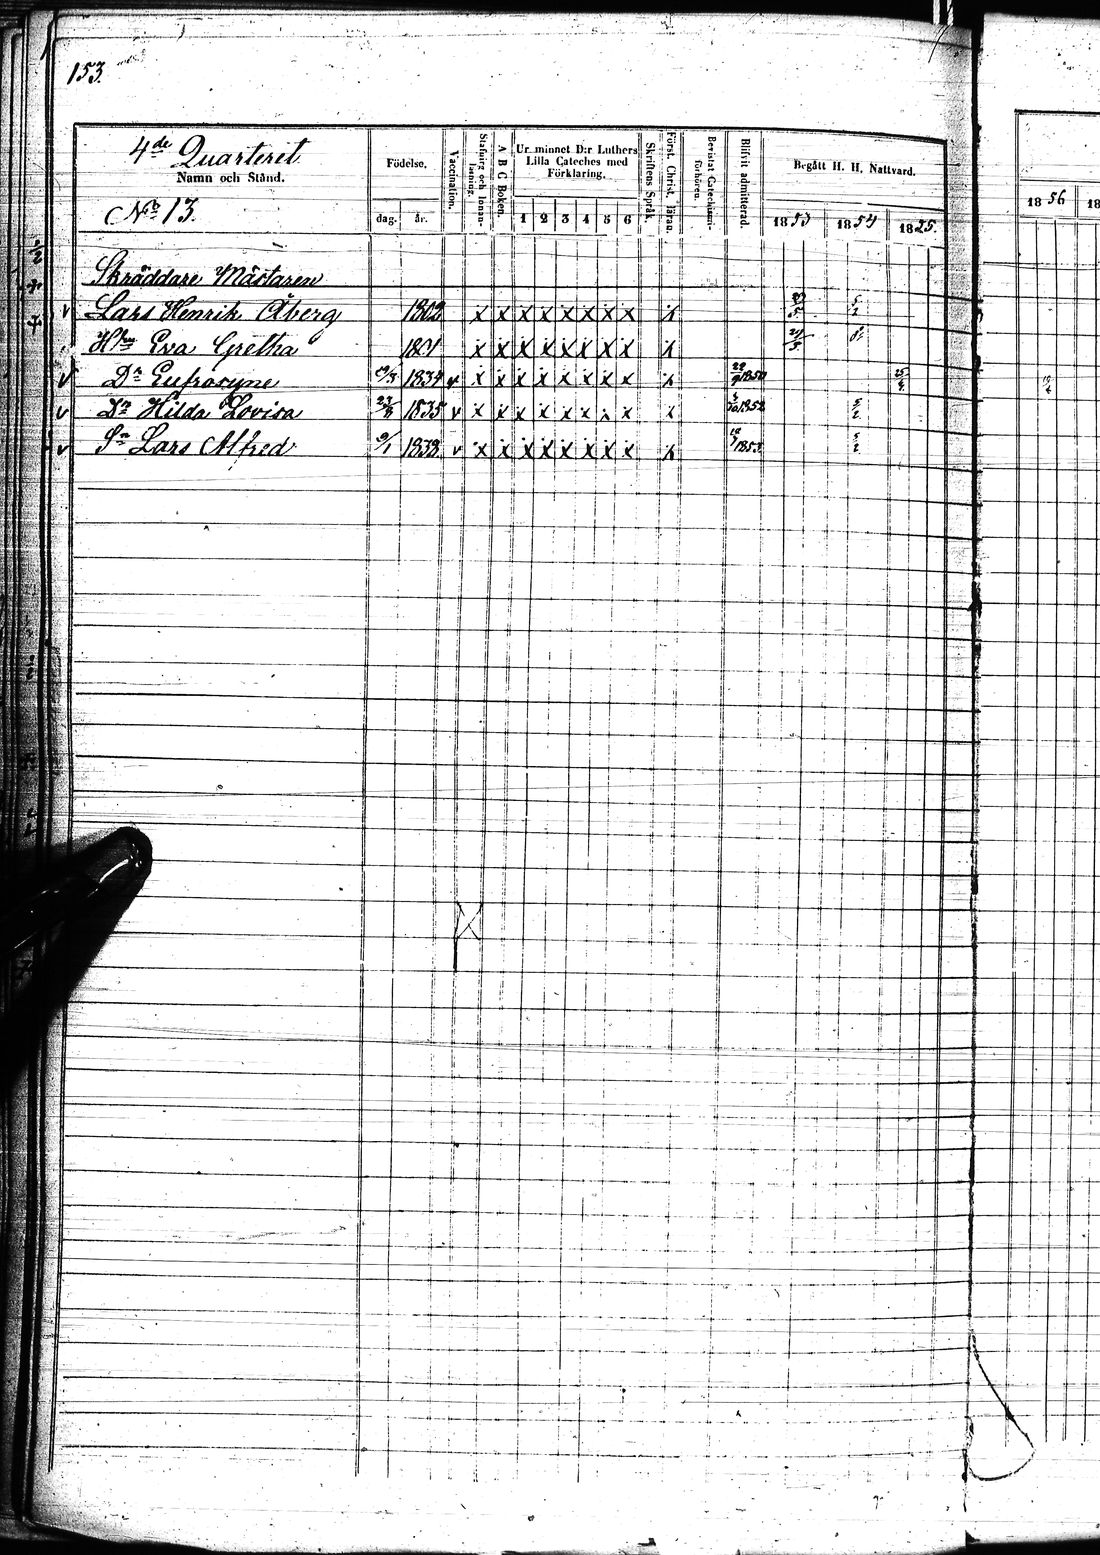 153.
4de Quarteret
Namn och Stånd.
No 13.
Födelse.
dag. år.
Vaccination.
Stafning och Innanläsning.
A B C Boken.
Ur minnet D:r Luthers
Lilla Cateches med
Förklaring.
1 2 3 4 5 6
Skriftens Språk.
Först. Christ. läran.
Bevistat Catechumiförhören.
Blifvit admitterad.
Begått H. H. Nattvard.
1853 1854 1825.
1856 18
Skräddare Mästaren
v Lars Henrik Åberg 1802 x x x x x x x x x 5/2
Hn Eva Gretha x x x x x x x x x
v Dr Eufrosyne 1834 v x x x x x x x x x 1850
v Dr Hilda Lovisa 23/8 1835 v x x x x x x x x x 1852 5/2
v Sn Lars Alfred 9/1 1838. v x x x x x x x x x 1853. 5/2